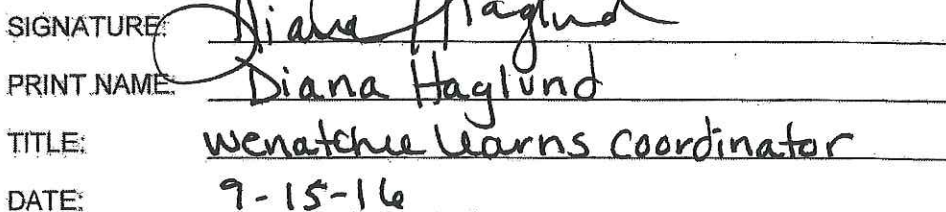 SIGNATURE: Diana Haglund
PRINT NAME: Diana Haglund
TITLE: Wenatchee Learns Coordinator
DATE: 9-15-16